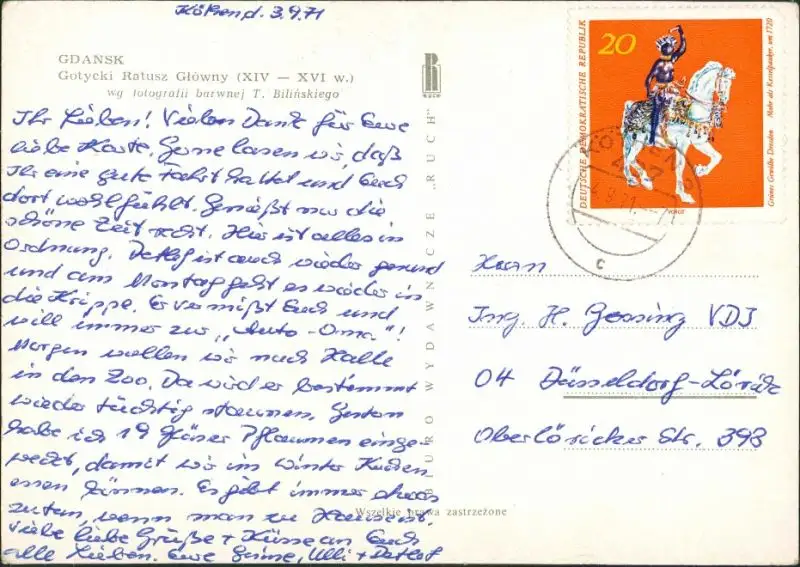 Köthen d. 3.9.71
GDAŃSK
Gotycki Ratusz Główny (XIV — XVI w.)
wg fotografii barwnej T. Bilińskiego
Ihr Lieben! Vielen Dank für Eure
liebe Karte. Gerne lasen wir, daß
Ihr eine gute Fahrt hattet und Euch
dort wohlfühlt. Genießt nur die
schöne Zeit recht. Hier ist alles in
Ordnung. Detlef ist auch wieder gesund
und am Montag geht es wieder in
die Krippe. Er vermißt Euch und
will immer zur „Auto-Oma"!
Morgen wollen wir nach Halle
in den Zoo. Da wird er bestimmt
wieder tüchtig staunen. Gestern
habe ich 19 Gläser Pflaumen einge-
weckt, damit wir im Winter Kuchen
essen können. Es gibt immer etwas
zu tun, wenn man zu Hause ist.
Viele liebe Grüße + Küsse an Euch
alle Lieben. Eure Ulli + Detlef
BIURO WYDAWNICZE „RUCH"
RUCH
Wszelkie prawa zastrzeżone
20
DEUTSCHE DEMOKRATISCHE REPUBLIK
Grünes Gewölbe Dresden Mohr als Kesselpauker, um 1720
KÖTHEN
437
c
Herrn
Ing. H. VDI
04 Düsseldorf-Lörick
Oberlöricker Str. 393